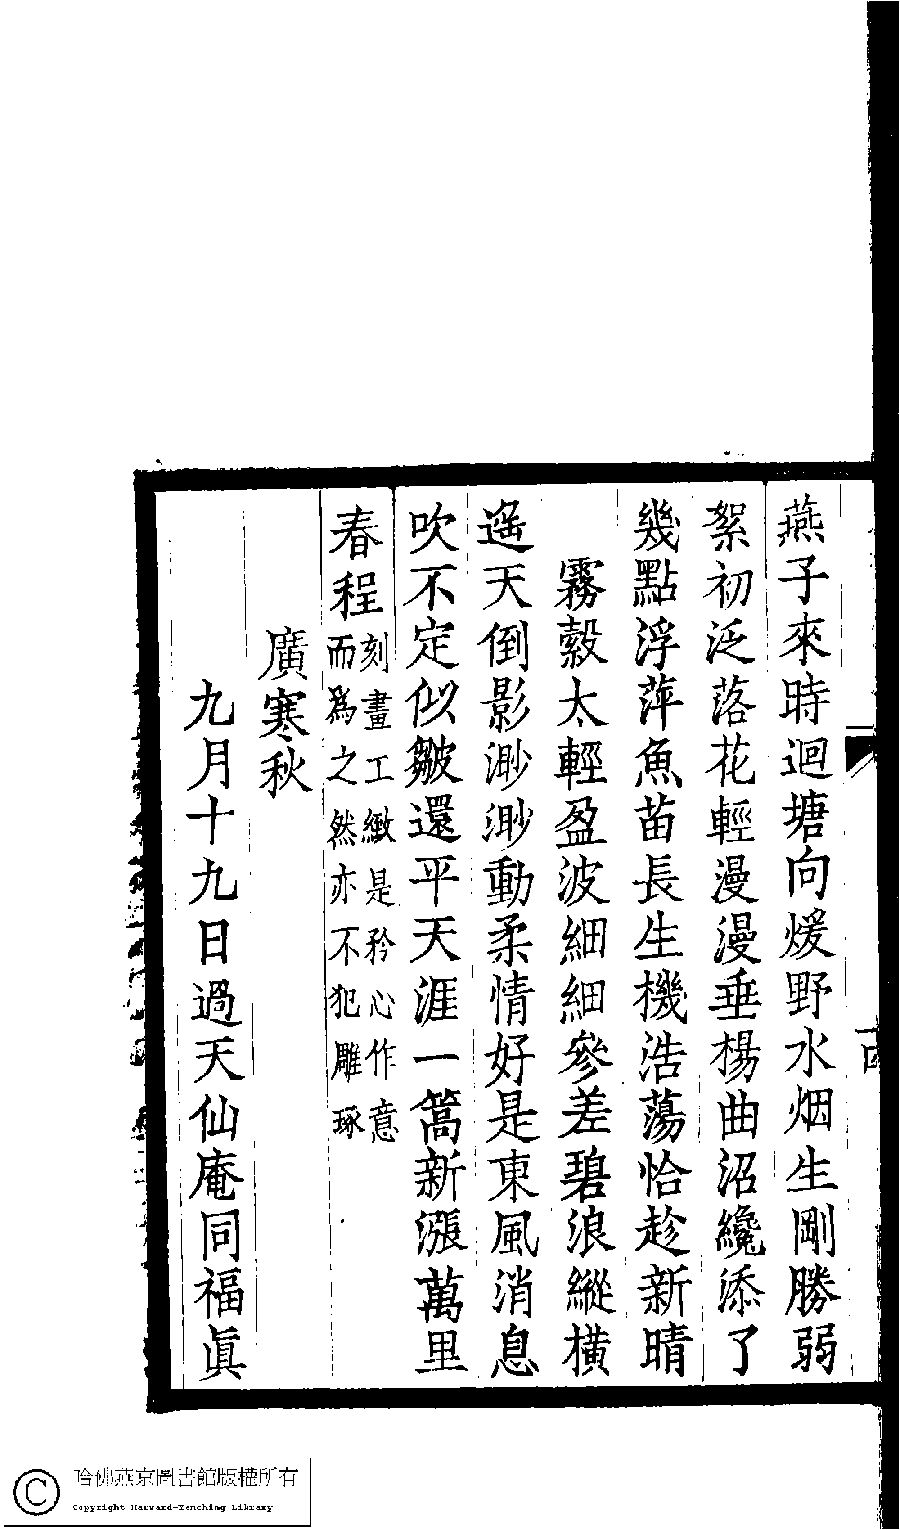 燕子來時迴塘向煖野水烟生剛勝弱
絮初泛落花輕漫漫垂楊曲沼纔添了
幾點浮萍魚苗長生機浩蕩恰趁新晴
霧縠太輕盈波細細參差碧浪縱橫
遥天倒影渺渺動柔情好是東風消息
吹不定似皺還平天涯一篙新漲萬里
春程
刻畫工緻是矜心作意
而爲之然亦不犯雕琢
廣寒秋
九月十九日過天仙庵同福眞
哈佛燕京圖書館版權所有
Copyright Harvard-Yenching Library